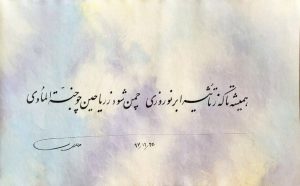 همیشه تا که ز تأثیر ابر نوروزی چمن شود ز ریاحین چو جنة المأوی